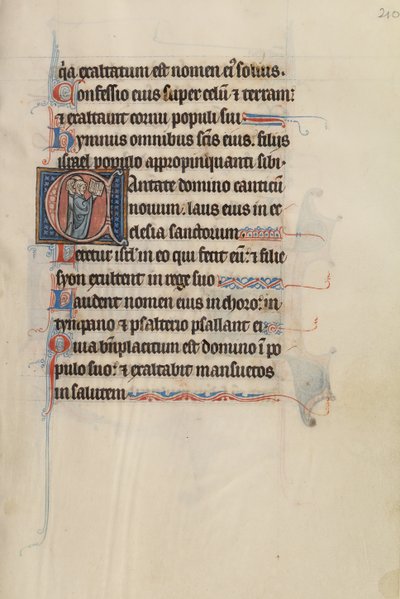 210
q̇a exaltatum est nomen ei᷒ solius.
Confessio eius super celū ⁊ terram:
⁊ exaltauit cornu populi sui
Hymnus omnibus sc̄is eius. filijs
israel populo appropinquanti sibi.
Cantate domino canticū
nouum. laus eius in ec
clesia sanctorum
Letetur isrl̄ in eo qui fecit eū: ⁊ filie
syon exultent in rege suo
Laudent nomen eius in choro: in
tympano ⁊ psalterio psallant ei
Quia bn̄placitum est domino ī po
pulo suo: ⁊ exaltabit mansuetos
in salutem